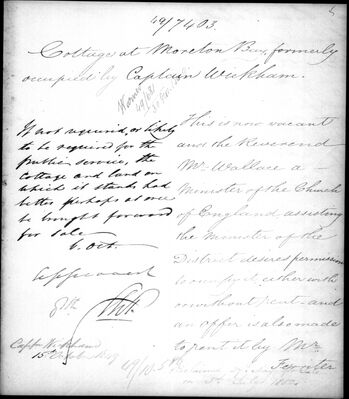 49/7403.
Cottage at Moreton Bay, formerly
occupied by Captain Wickham.
This is now vacant
and the Reverend
Mr. Wallace a
Minister of the Church
of England assisting
the Minister of the
District desires permission
to occupy it either with
or without rent and
an offer is also made
to rent it by Mr.
If not required, or likely
to be required for the
public service, the
cottage and land on
which it stands had
better perhaps at once
be brought forward
for sale
6. Oct.
approved
8th
Captn Wickham
15th October 1849